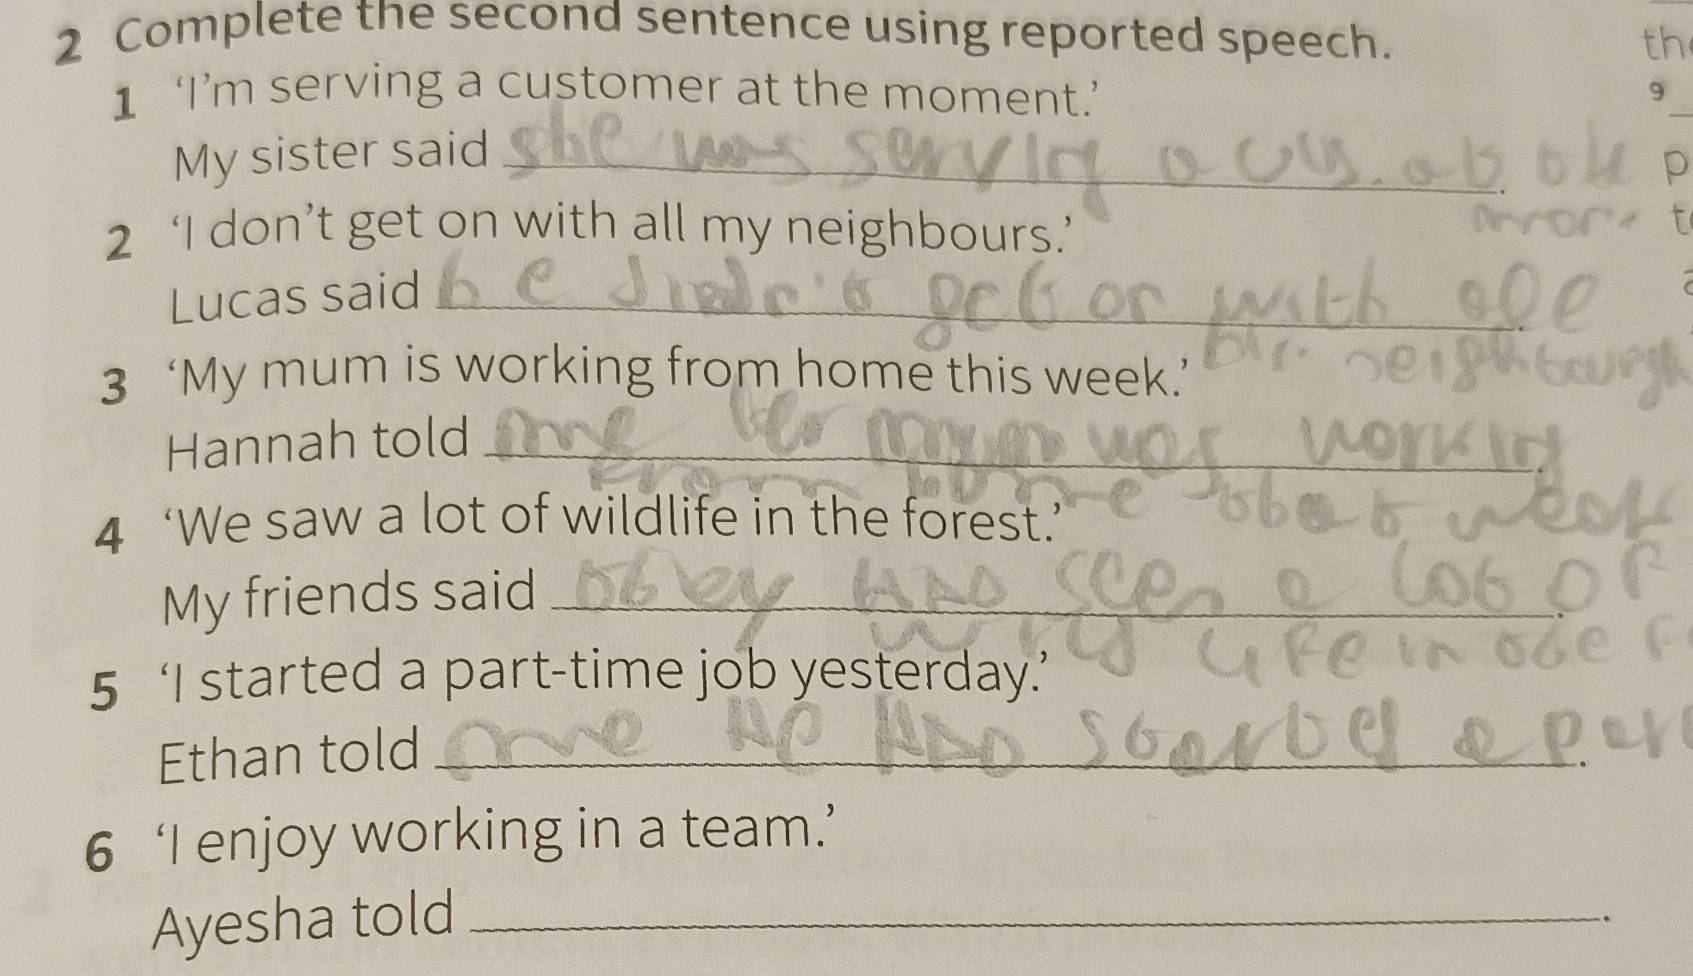 2 Complete the second sentence using reported speech.
th
1 'I'm serving a customer at the moment.'
9
My sister said she was serving a cus. at
p
2 'I don't get on with all my neighbours.'
Lucas said he didn't get on with all
3 'My mum is working from home this week.'
Hannah told me her mum was working
from home that week
4 'We saw a lot of wildlife in the forest.'
My friends said they HAD seen a lot of
wild life in the f
5 'I started a part-time job yesterday.'
Ethan told me He HAD started a par
6 'I enjoy working in a team.'
Ayesha told .